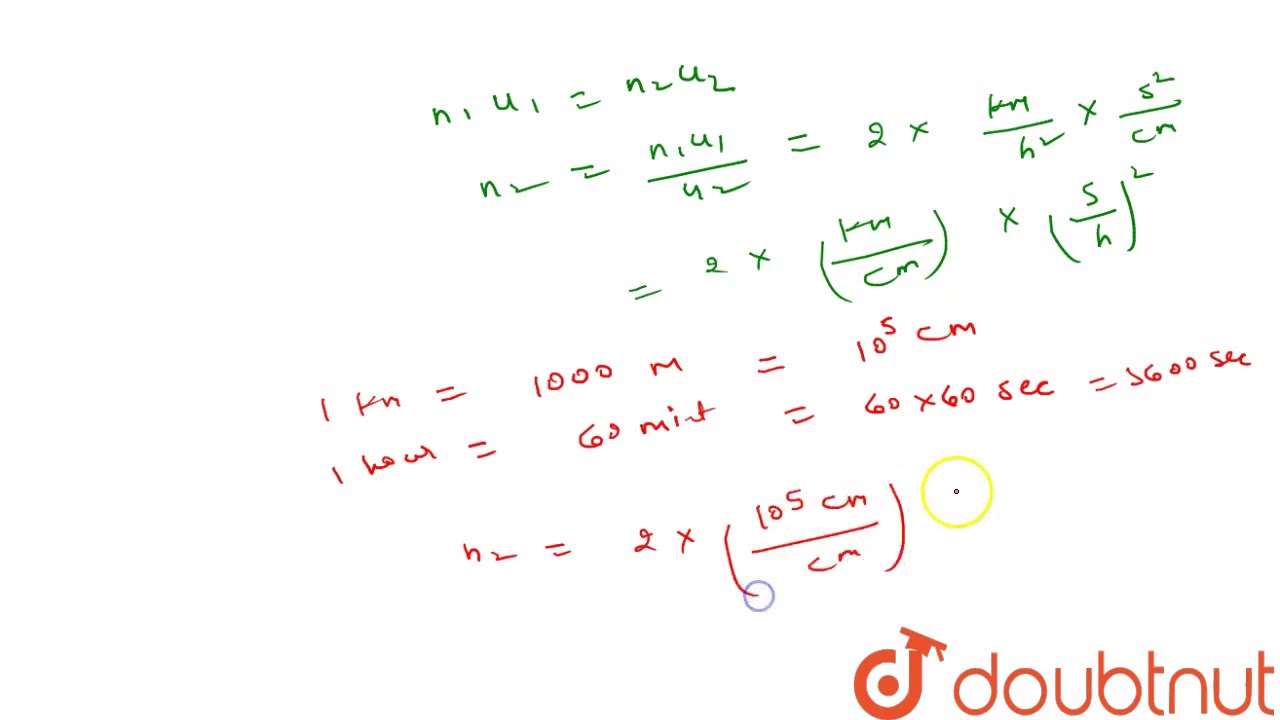 n₁ u₁ = n₂ u₂
n₂ = n₁u₁/u₂ = 2 × km/h² × s²/cm
= 2 × (km/cm) × (s/h)²
1 km = 1000 m = 10⁵ cm
1 hour = 60 mint = 60×60 sec = 3600 sec
n₂ = 2 × (10⁵ cm/cm)
doubtnut